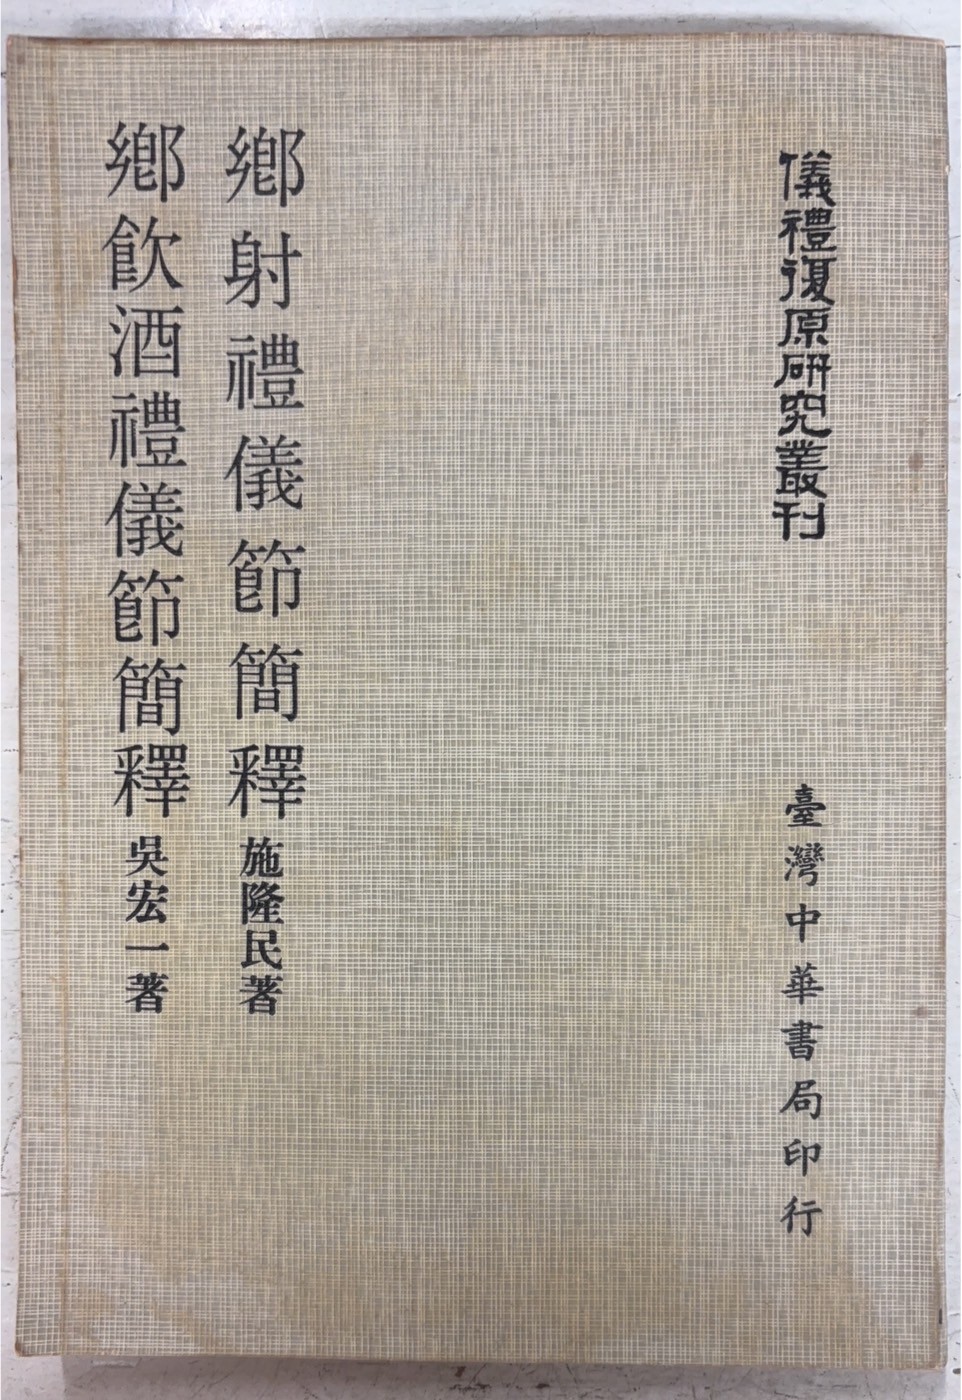 儀禮復原研究叢刊
臺灣中華書局印行
鄉射禮儀節簡釋 施隆民著
鄉飲酒禮儀節簡釋 吳宏一著